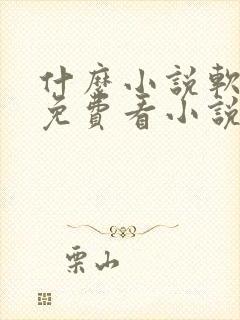 什麼小說軟
免費看小說
栗山